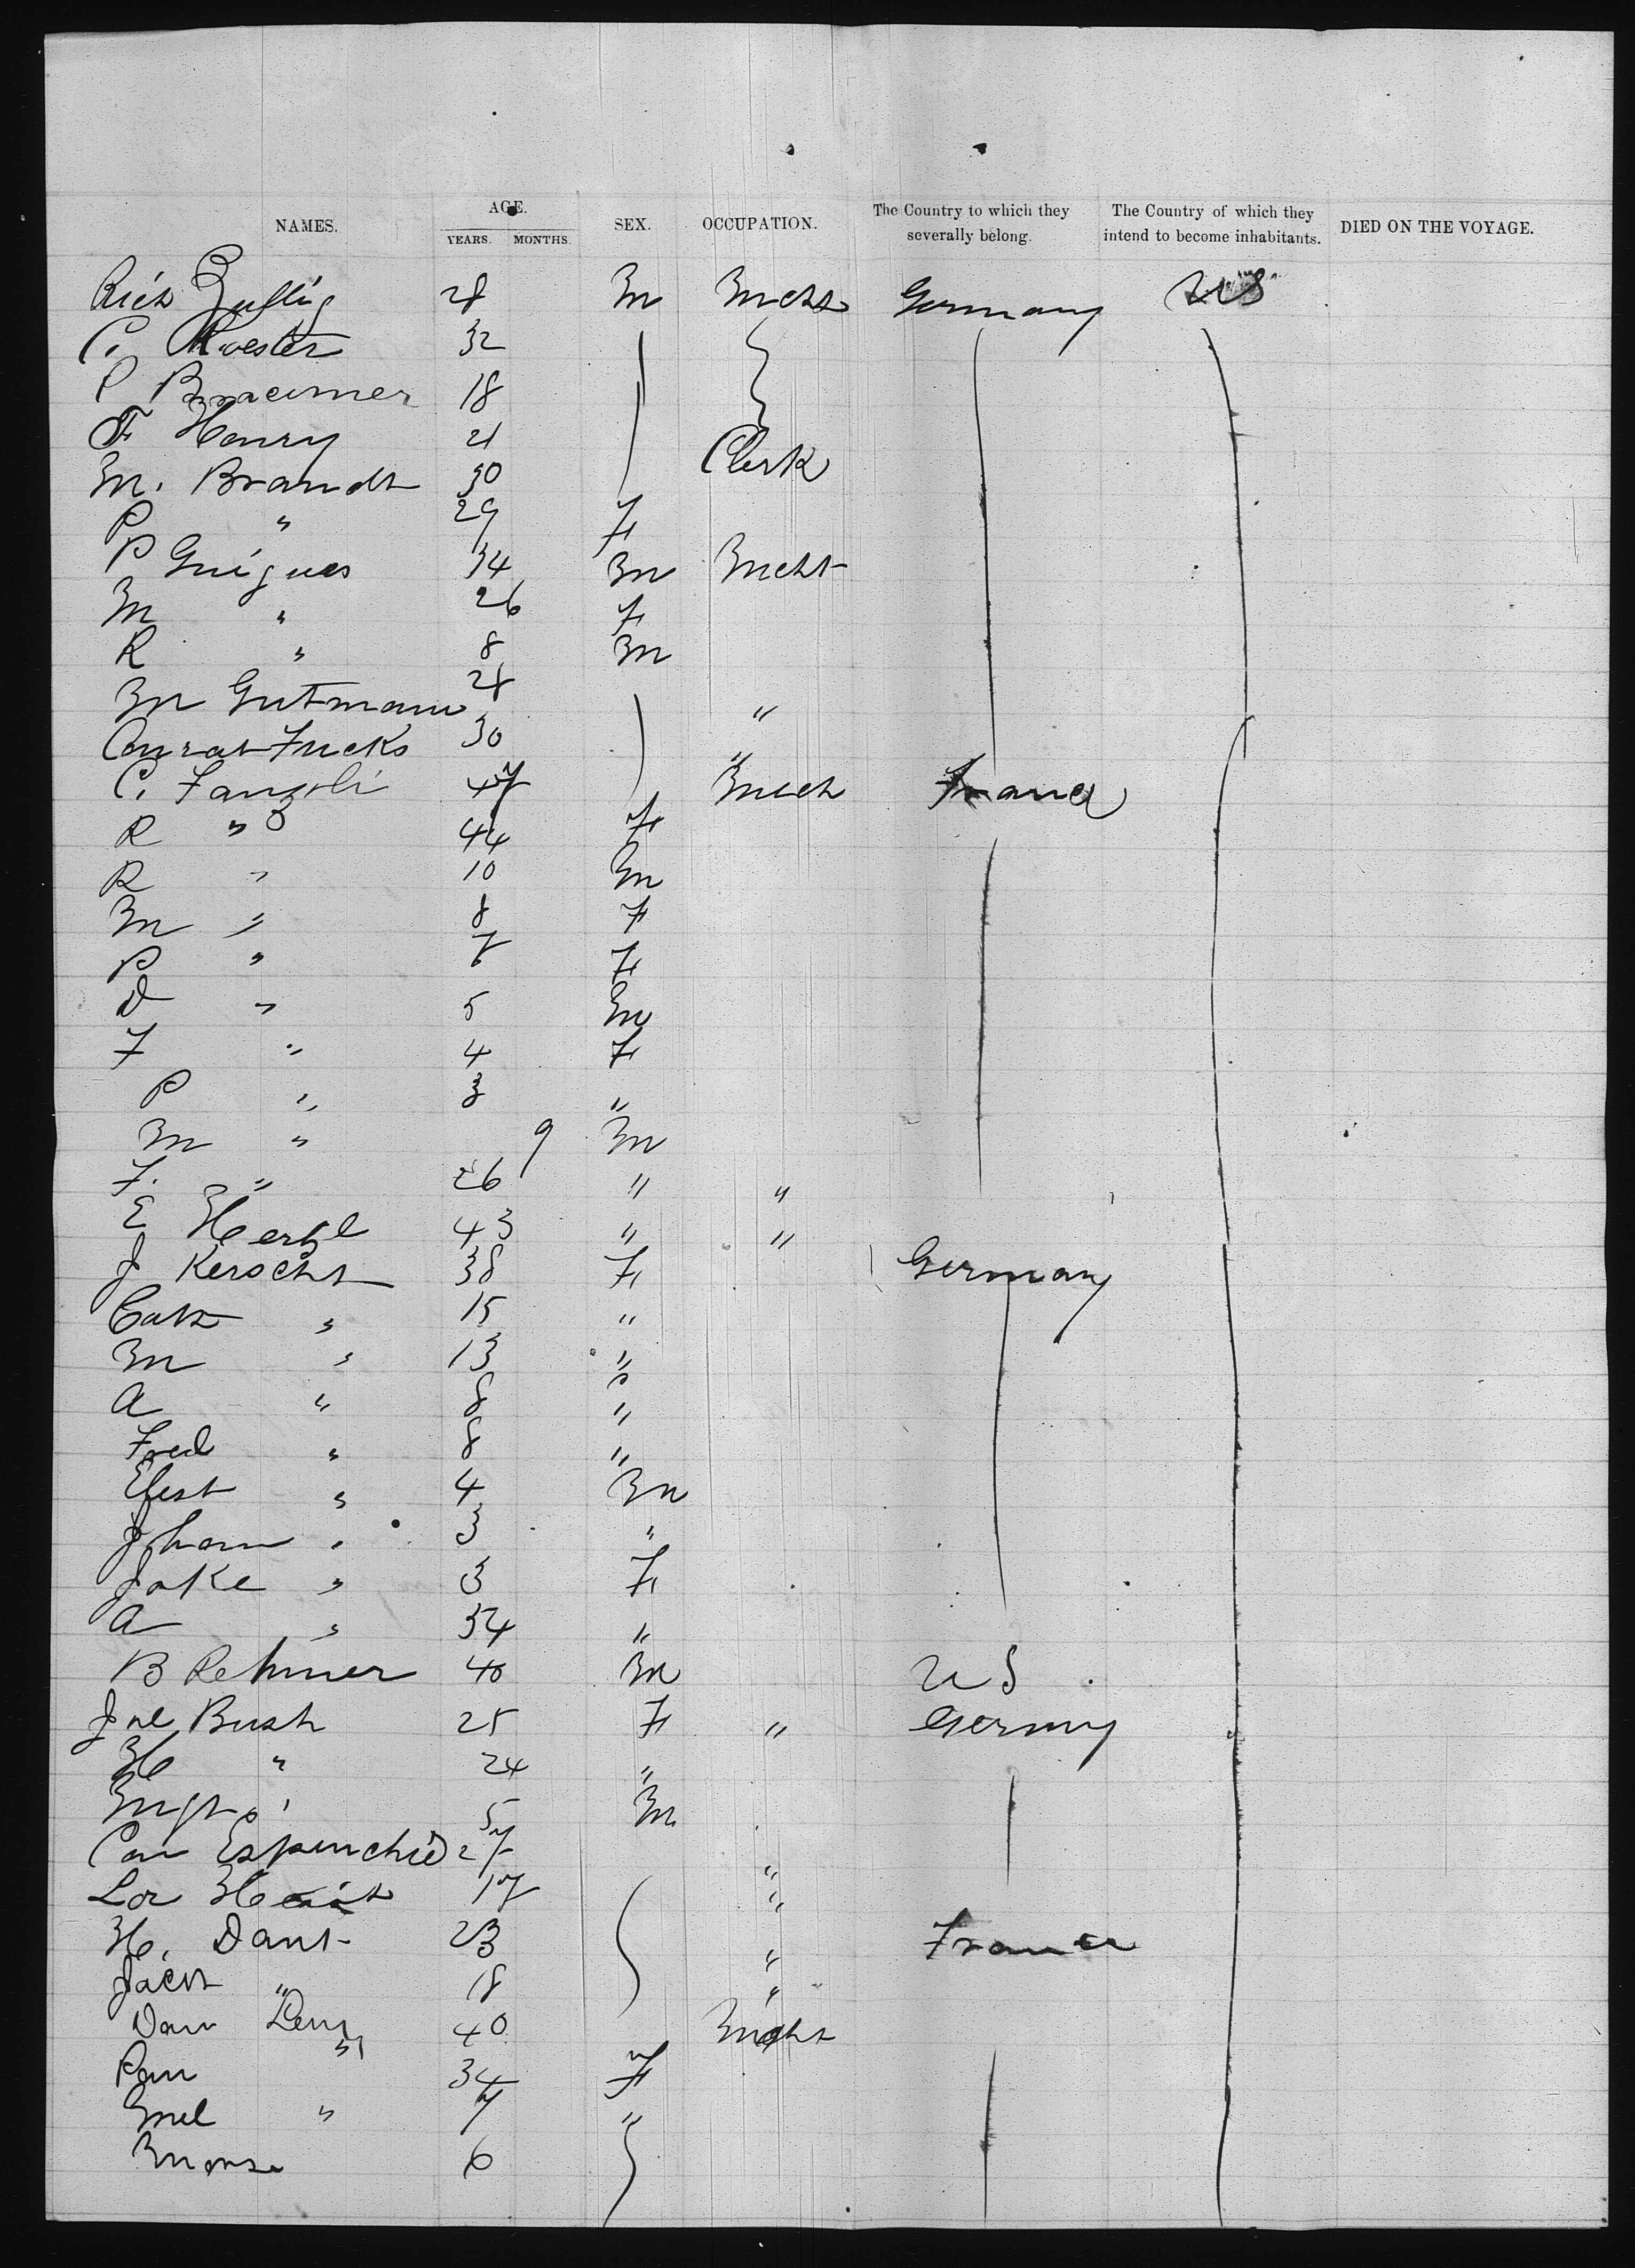 NAMES. AGE. YEARS. MONTHS. SEX. OCCUPATION. The Country to which they severally belong. The Country of which they intend to become inhabitants. DIED ON THE VOYAGE.
Rich Zuflig 28 M Mcht Germany US
C. Koester 32
P 18
F Henry 21
M. Brandt 30 Clerk
P " 29 F
P Guigues 34 M Mcht
M " 26 F
R " 8 M
M Gutmann 28 "
Conrat Fucks 30 "
C. Fanzoli 47 Mech France
R " 44 F
R " 10 M
M " 8 F
P " 7 F
D " 5 M
F " 4 F
P " 3 "
M " 9 M
F. " 26 " "
E Hertzl 43 " "
J Kerscht 38 F Germany
Cath " 15 "
M " 13 "
A " 8 "
Fred " 8 "
" 4 M
Johann " 3 "
Jake " 3 F
A " 34 "
B Rehmer 40 M US
Joe Bush 25 F " Germy
H " 24 "
" 5 M
Espenchid 27 "
Lor 17 "
H. Dant 23 " France
Jacob " 18 "
Dan Levy 40 Mcht
" 34 F
Mel " 7 "
6